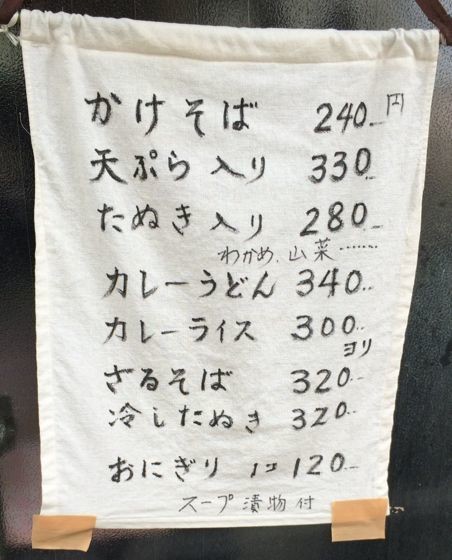 かけそば 240 円
天ぷら入り 330
たぬき入り 280
わかめ、山菜……
カレーうどん 340
カレーライス 300
ヨリ
ざるそば 320
冷したぬき 320
おにぎり 1コ 120
スープ漬物付